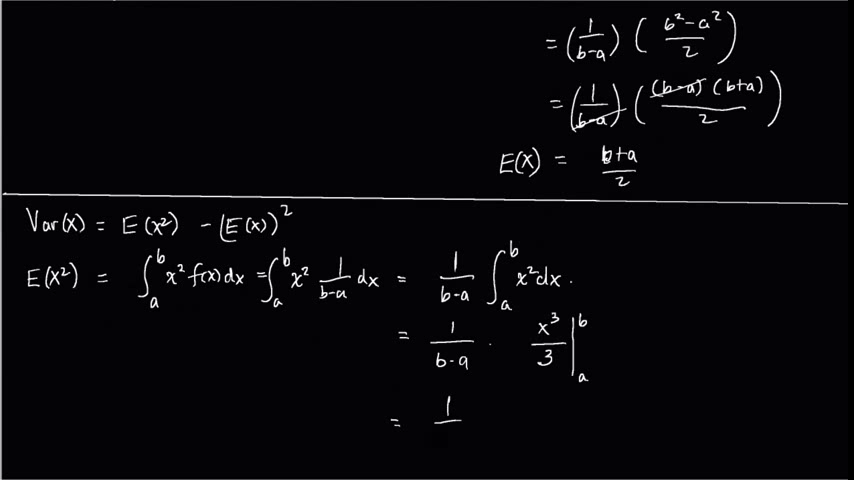 = (1/(b-a)) ((b²-a²)/2)
= (1/(b-a)) ((b-a)(b+a)/2)
E(X) = (b+a)/2
Var(X) = E(X²) - (E(X))²
E(X²) = ∫_a^b x² f(x) dx = ∫_a^b x² 1/(b-a) dx = 1/(b-a) ∫_a^b x² dx.
= 1/(b-a) · x³/3 |_a^b
= 1/